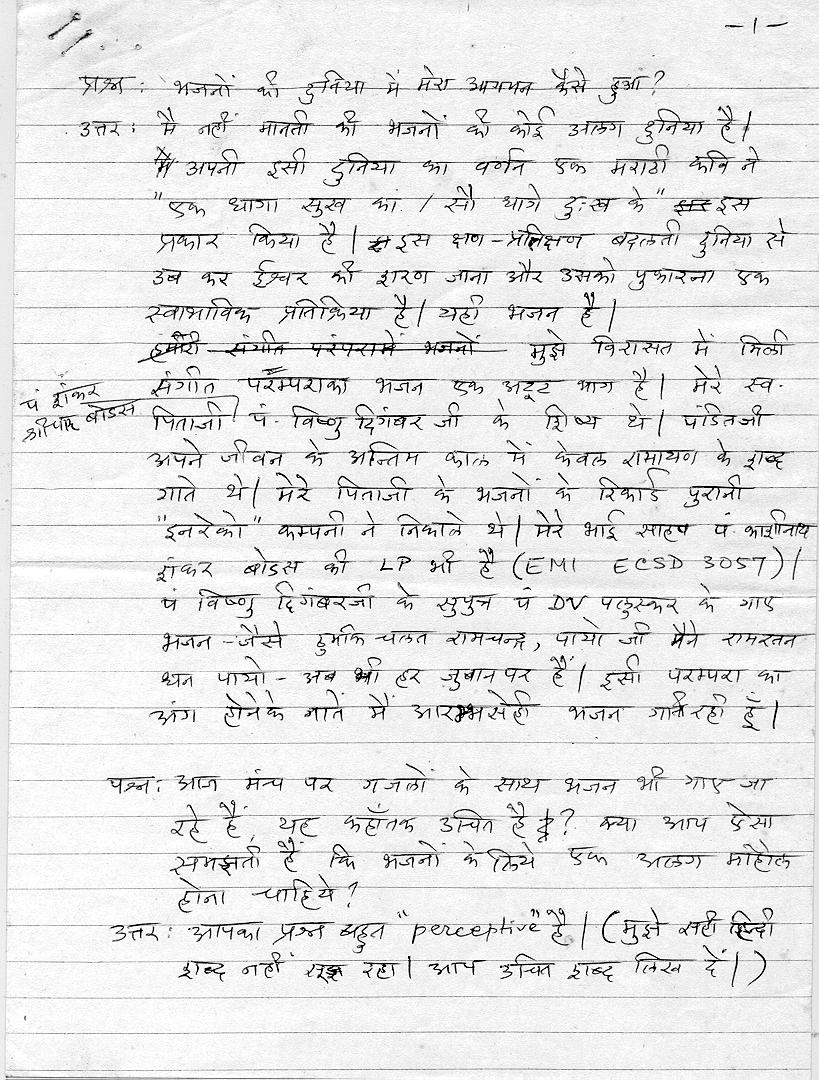 -1-
प्रश्न: भजनों की दुनिया में मेरा आगमन कैसे हुआ?
उत्तर: मैं नहीं मानती की भजनों की कोई अलग दुनिया है।
अपनी इसी दुनिया का वर्णन एक मराठी कवि ने
"एक धागा सुख का / सौ धागे दुःख के" इस
प्रकार किया है। इस क्षण-प्रतिक्षण बदलती दुनिया से
उब कर ईश्वर की शरण जाना और उसको पुकारना एक
स्वाभाविक प्रतिक्रिया है। यही भजन है।
हमारी संगीत परंपरामें भजनों मुझे विरासत में मिली
संगीत परम्पराका भजन एक अटूट भाग है। मेरे स्व.
पं शंकर
श्रीपाद बोडस
पिताजी पं. विष्णु दिगंबर जी के शिष्य थे। पंडितजी
अपने जीवन के अन्तिम काल में केवल रामायण के शब्द
गाते थे। मेरे पिताजी के भजनों के रिकार्ड पुरानी
"इनरेको" कम्पनी ने निकाले थे। मेरे भाई साहब पं. काशीनाथ
शंकर बोडस की LP भी है (EMI ECSD 3057)।
पं विष्णु दिगंबरजी के सुपुत्र पं DV पलुस्कर के गाए
भजन - जैसे ठुमकि चलत रामचन्द्र, पायो जी मैने रामरतन
धन पायो - अब भी हर जुबान पर हैं। इसी परम्परा का
अंग होनेके नाते मैं आरम्भसेही भजन गाती रही हूँ।
पश्न: आज मंच पर गजलों के साथ भजन भी गाए जा
रहे हैं, यह कहाँतक उचित है? क्या आप ऐसा
समझती हैं कि भजनों के लिये एक अलग माहौल
होना चाहिये?
उत्तर: आपका प्रश्न बहुत "perceptive" है। (मुझे सही हिन्दी
शब्द नहीं सूझ रहा। आप उचित शब्द लिख दें।)